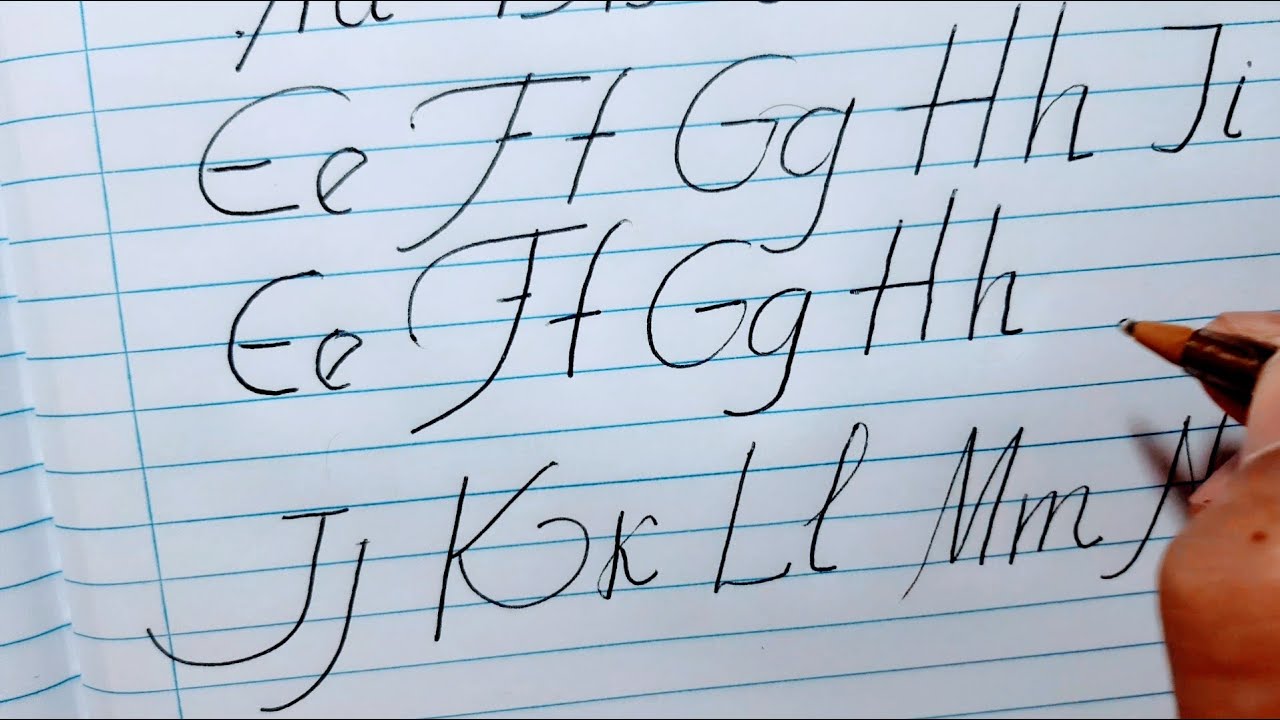 Ee Ff Gg Hh Ii
Ee Ff Gg Hh
Jj Kk Ll Mm N